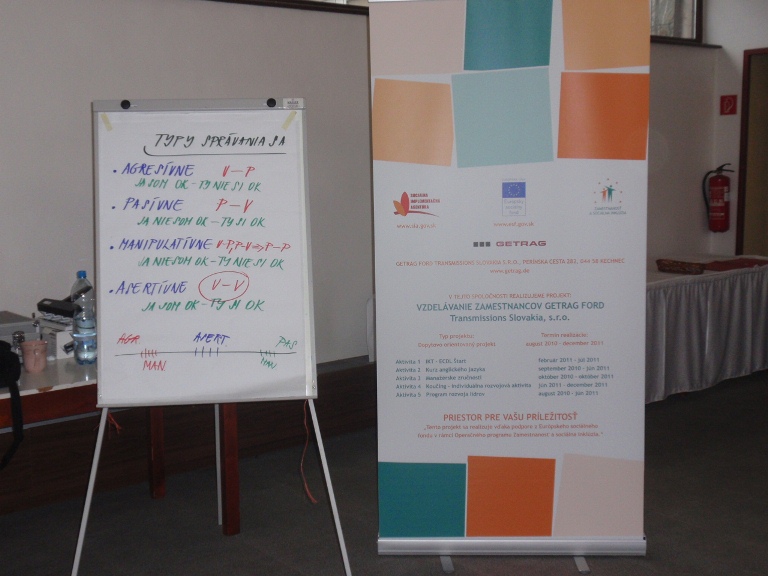 TYPY SPRÁVANIA SA
• AGRESÍVNE V – P
JA SOM OK – TY NIE SI OK
• PASÍVNE P – V
JA NIE SOM OK – TY SI OK
• MANIPULATÍVNE V-P, P-V => P-P
JA NIE SOM OK – TY NIE SI OK
• ASERTÍVNE V – V
JA SOM OK – TY SI OK
AGR. ASERT. PAS
MAN MAN
SOCIÁLNA
IMPLEMENTAČNÁ
AGENTÚRA
www.sia.gov.sk
www.esf.gov.sk
GETRAG
GETRAG FORD TRANSMISSIONS SLOVAKIA S.R.O., PERÍNSKA CESTA 282, 044 58 KECHNEC
www.getrag.de
V TEJTO SPOLOČNOSTI REALIZUJEME PROJEKT:
VZDELÁVANIE ZAMESTNANCOV GETRAG FORD
Transmissions Slovakia, s.r.o.
Typ projektu: Termín realizácie:
Dopytovo orientovaný projekt august 2010 - december 2011
Aktivita 1 IKT - ECDL Štart február 2011 - júl 2011
Aktivita 2 Kurz anglického jazyka september 2010 - jún 2011
Aktivita 3 Manažérske zručnosti október 2010 - október 2011
Aktivita 4 Koučing - individuálna rozvojová aktivita jún 2011 - december 2011
Aktivita 5 Program rozvoja lídrov august 2010 - jún 2011
PRIESTOR PRE VAŠU PRÍLEŽITOSŤ
„Tento projekt sa realizuje vďaka podpore z Európskeho sociálneho
fondu v rámci Operačného programu Zamestnanosť a sociálna inklúzia."